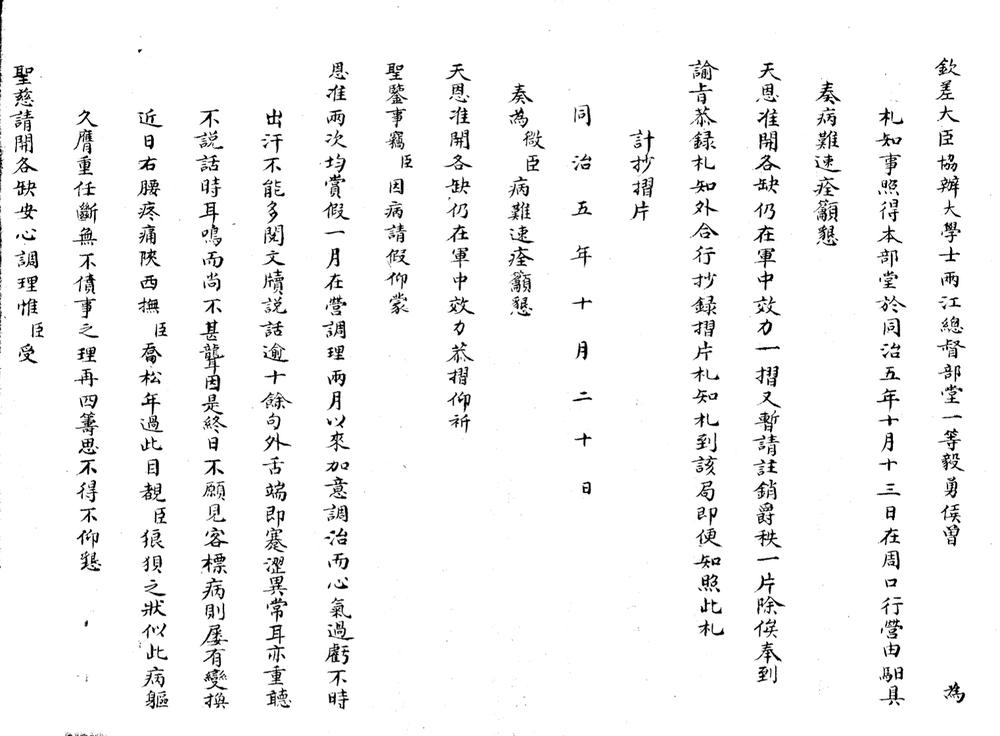 欽差大臣協辦大學士兩江總督部堂一等毅勇侯曾 為
札知事照得本部堂於同治五年十月十三日在周口行營由馹具
奏病難速痊籲懇
天恩准開各缺仍在軍中效力一摺又暫請註銷爵秩一片除俟奉到
諭旨恭録札知外合行抄録摺片札知札到該局即便知照此札
計抄摺片
同治五年十月二十日
奏為微臣病難速痊籲懇
天恩准開各缺仍在軍中效力恭摺仰祈
聖鑒事竊臣因病請假仰蒙
恩准兩次均賞假一月在營調理兩月以來加意調治而心氣過虧不時
出汗不能多閱文牘説話逾十餘句外舌端即蹇澀異常耳亦重聽
不説話時耳鳴而尚不甚聾因是終日不願見客標病則屡有變換
近日右腰疼痛陝西撫臣喬松年過此目覩臣狼狽之狀似此病軀
久膺重任斷無不僨事之理再四籌思不得不仰懇
聖慈請開各缺安心調理惟臣受